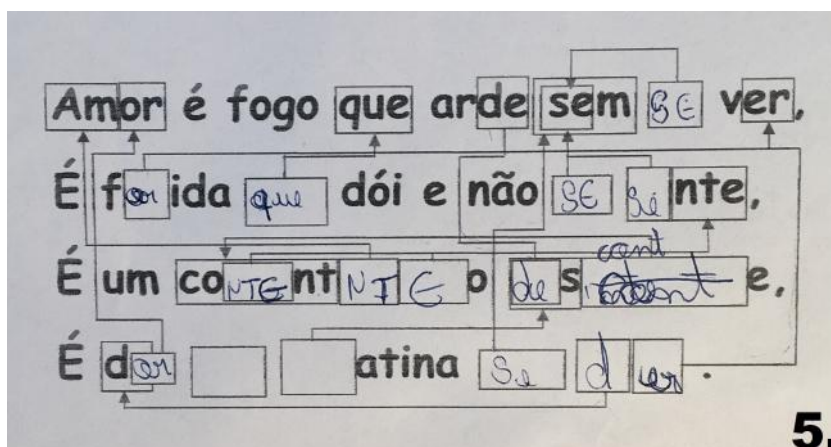 Amor é fogo que arde sem SE ver,
É ferida que dói e não SE Sente,
cont
É um coNTEnt NT E o de s e,
É dor atina Se d er .
5.